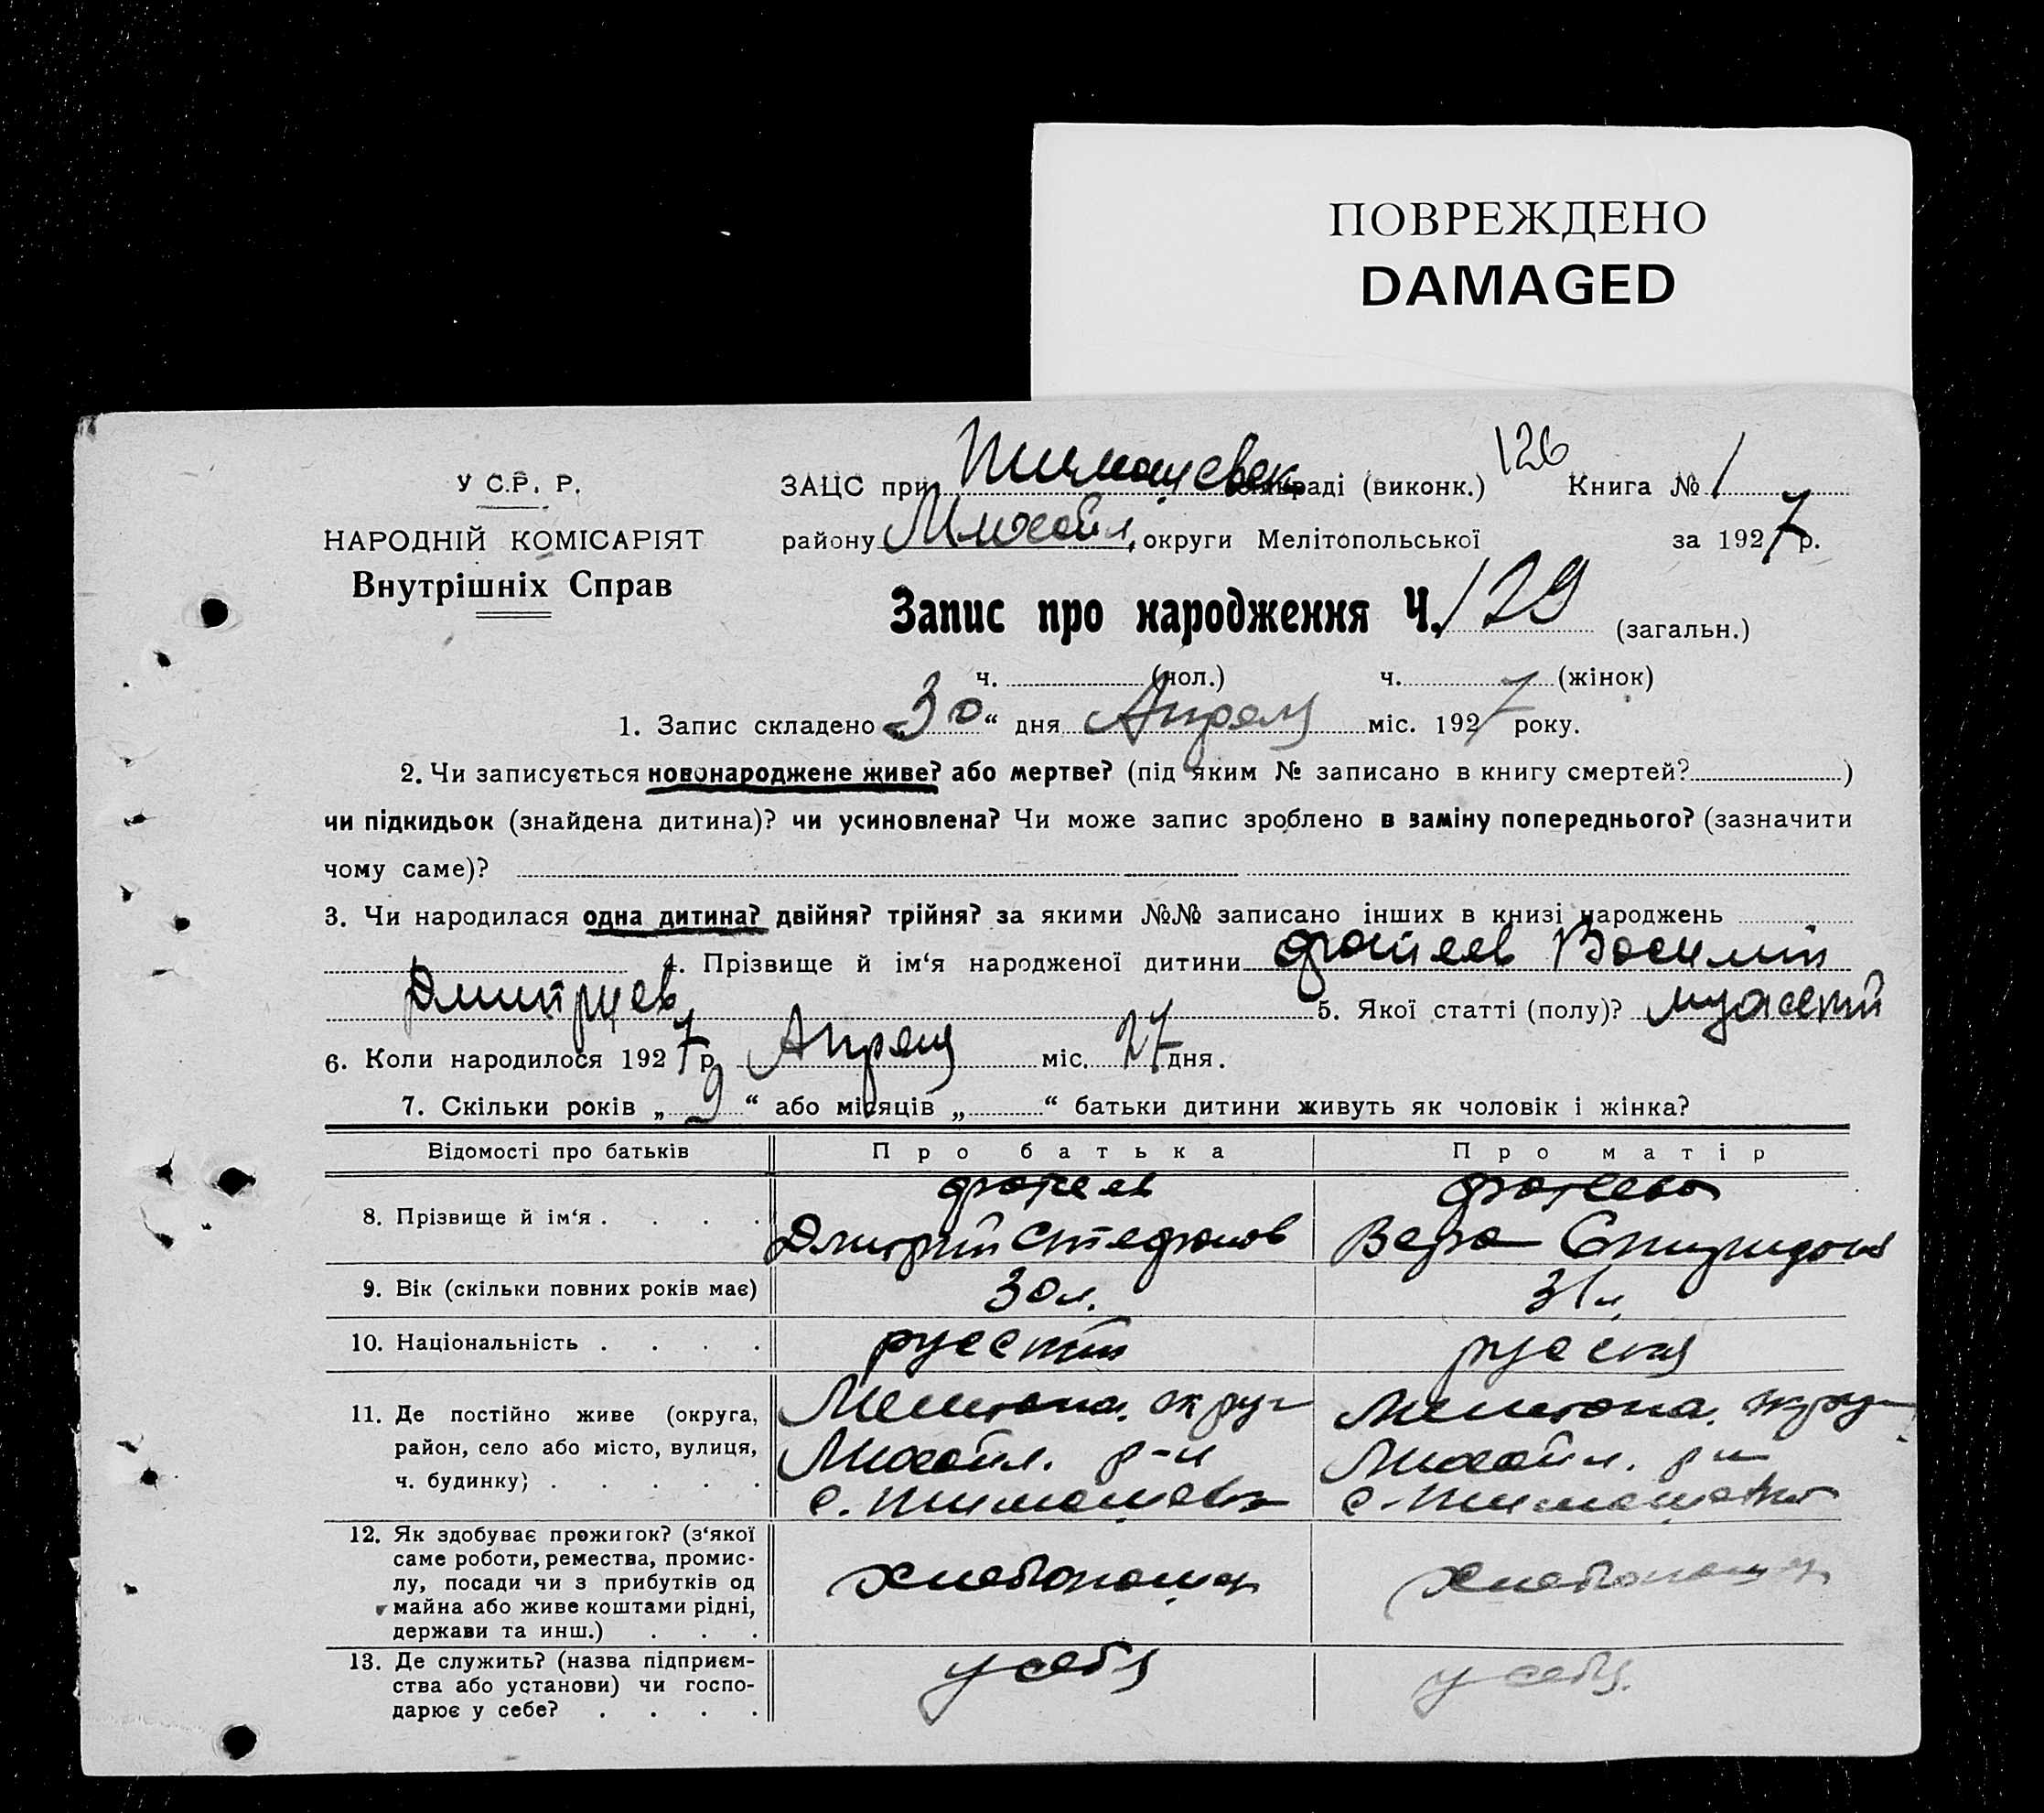 ПОВРЕЖДЕНО
DAMAGED
126
У С.Р. Р.
ЗАЦС при Тимошевск. сільраді (виконк.) Книга № 1
НАРОДНІЙ КОМІСАРІЯТ
району Михайл. округи Мелітопольської за 1927 р.
Внутрішніх Справ
Запис про народження Ч. 129 (загальн.)
ч. (чол.) ч. (жінок)
1. Запис складено „30“ дня Апреля міс. 1927 року.
2. Чи записується новонароджене живе? або мертве? (під яким № записано в книгу смертей? )
чи підкидьок (знайдена дитина)? чи усиновлена? Чи може запис зроблено в заміну попереднього? (зазначити
чому саме)?
3. Чи народилася одна дитина? двійня? трійня? за якими №№ записано інших в книзі народжень
4. Прізвище й ім‘я народженої дитини Фатеев Василий
Дмитриев 5. Якої статті (полу)? мужский
6. Коли народилося 1927 р. Апреля міс. 27 дня.
7. Скільки років „9“ або місяців „ “ батьки дитини живуть як чоловік і жінка?
Відомості про батьків Про батька Про матір
8. Прізвище й ім‘я . . . . Фатеев Фатеева
Дмитрий Стефанов Вера Спиридон
9. Вік (скільки повних років має) 30 л. 31 л.
10. Національність . . . . русский русская
11. Де постійно живе (округа, Мелитоп. округ Мелитоп. округ
район, село або місто, вулиця, Михайл. р-н Михайл. р-н
ч. будинку) . . . . . с. Тимошевка с. Тимошевка
12. Як здобуває прожиток? (з‘якої
саме роботи, ремества, промис-
лу, посади чи з прибутків од хлебопашец хлебопашец
майна або живе коштами рідні,
держави та инш.) . . .
13. Де служить? (назва підприєм- у себя у себя.
ства або установи) чи госпо-
дарює у себе? . . . .